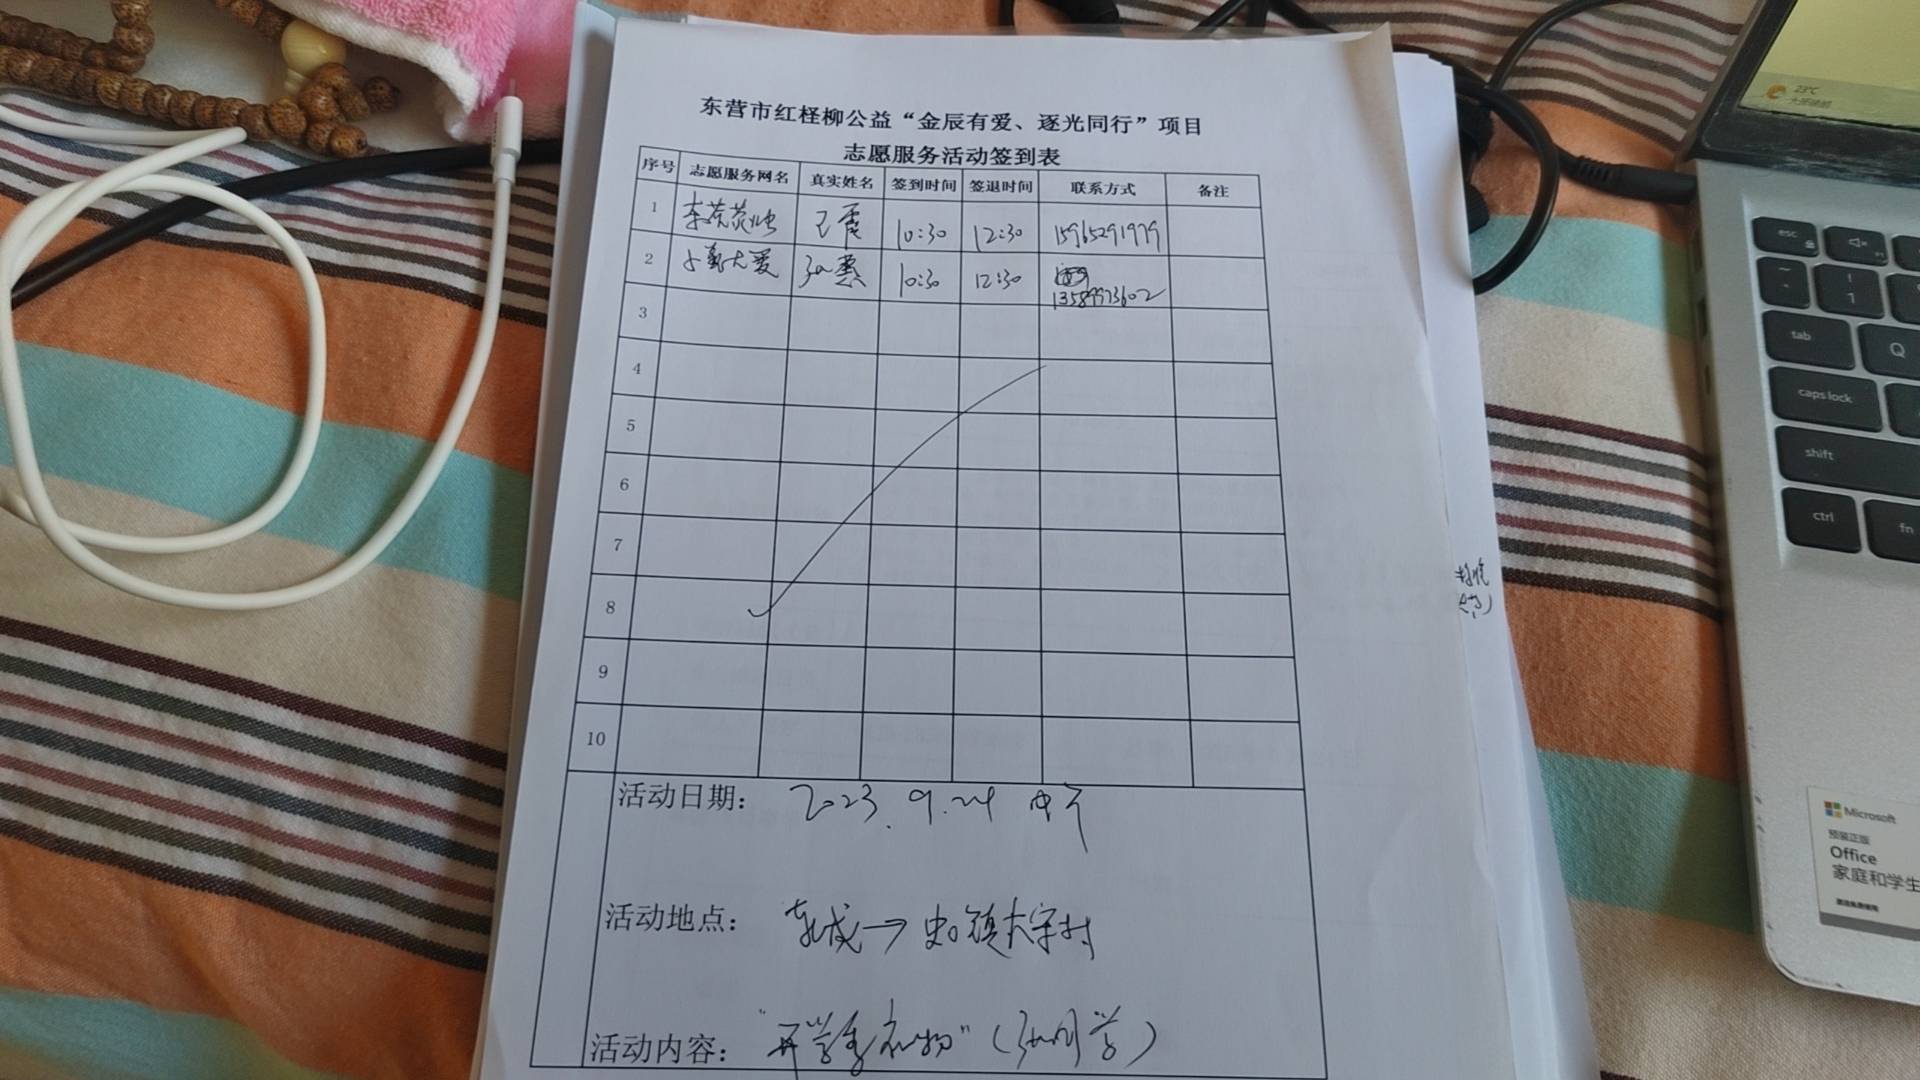 东营市红柽柳公益“金辰有爱、逐光同行”项目
志愿服务活动签到表
序号 志愿服务网名 真实姓名 签到时间 签退时间 联系方式 备注
1 10:30 12:30 15965291979
2 大爱 10:30 12:30 13589973602
3
4
5
6
7
8
9
10
活动日期： 2023.9.24
活动地点： 东城→史口镇大宋村
活动内容： “开学季礼物”（张同学）
23℃
esc
1
tab
Q
caps lock
shift
ctrl
fn
Microsoft
预装正版
Office
家庭和学生